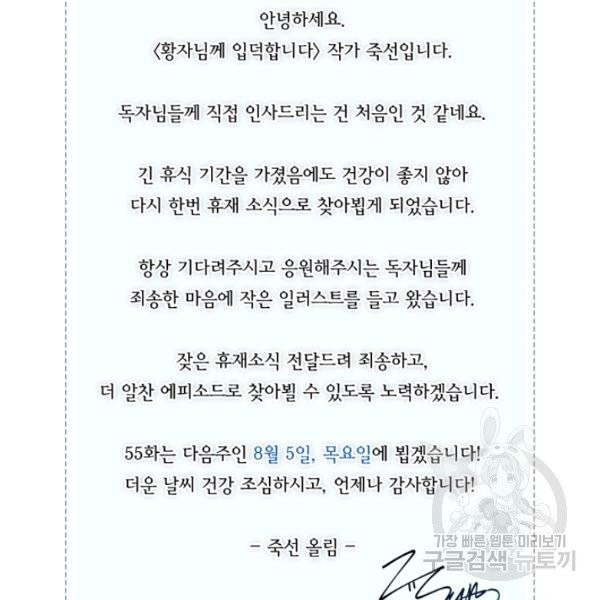 안녕하세요.
〈황자님께 입덕합니다〉 작가 죽선입니다.
독자님들께 직접 인사드리는 건 처음인 것 같네요.
긴 휴식 기간을 가졌음에도 건강이 좋지 않아
다시 한번 휴재 소식으로 찾아뵙게 되었습니다.
항상 기다려주시고 응원해주시는 독자님들께
죄송한 마음에 작은 일러스트를 들고 왔습니다.
잦은 휴재소식 전달드려 죄송하고,
더 알찬 에피소드로 찾아뵐 수 있도록 노력하겠습니다.
55화는 다음주인 8월 5일, 목요일에 뵙겠습니다!
더운 날씨 건강 조심하시고, 언제나 감사합니다!
- 죽선 올림 -
가장 빠른 웹툰 미리보기
구글검색 뉴토끼